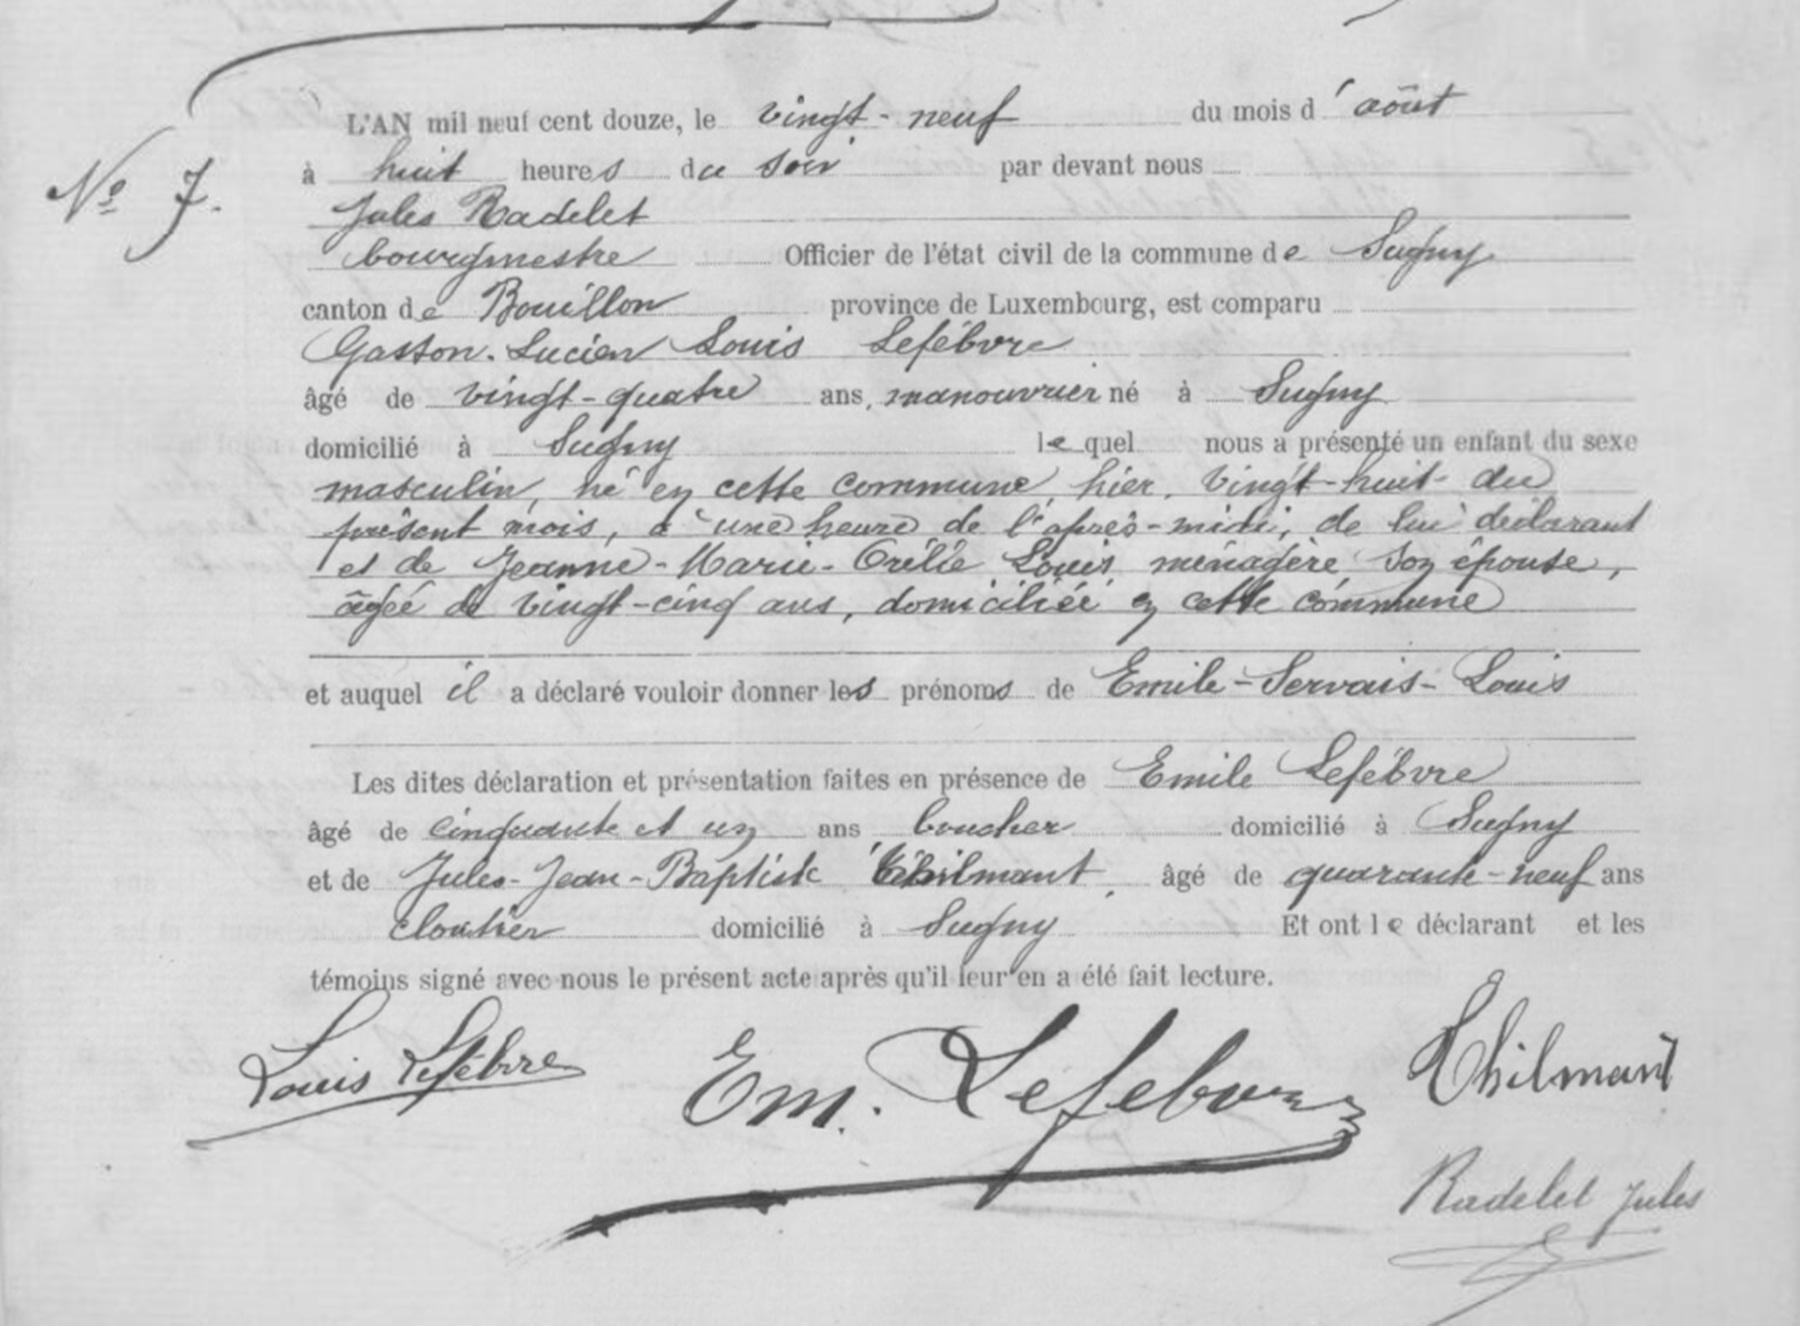 L'AN mil neuf cent douze, le vingt-neuf du mois d'août
N° 7.
à huit heures du soir par devant nous
Jules Radelet
bourgmestre Officier de l'état civil de la commune de Sugny
canton de Bouillon province de Luxembourg, est comparu
Gaston-Lucien Louis Lefébvre
âgé de vingt-quatre ans, manouvrier né à Sugny
domicilié à Sugny lequel nous a présenté un enfant du sexe
masculin, né en cette commune, hier, vingt-huit du
présent mois, à une heure de l'après-midi, de lui déclarant
et de Jeanne-Marie-Orélie Louis ménagère son épouse,
âgée de vingt-cinq ans, domiciliée en cette commune
et auquel il a déclaré vouloir donner les prénoms de Emile-Servais-Louis
Les dites déclaration et présentation faites en présence de Emile Lefébvre
âgé de cinquante et un ans boucher domicilié à Sugny
et de Jules-Jean-Baptiste Thilmant, âgé de quarante-neuf ans
cloutier domicilié à Sugny Et ont le déclarant et les
témoins signé avec nous le présent acte après qu'il leur en a été fait lecture.
Louis Lefébvre Em. Lefebvre Thilmant
Radelet Jules